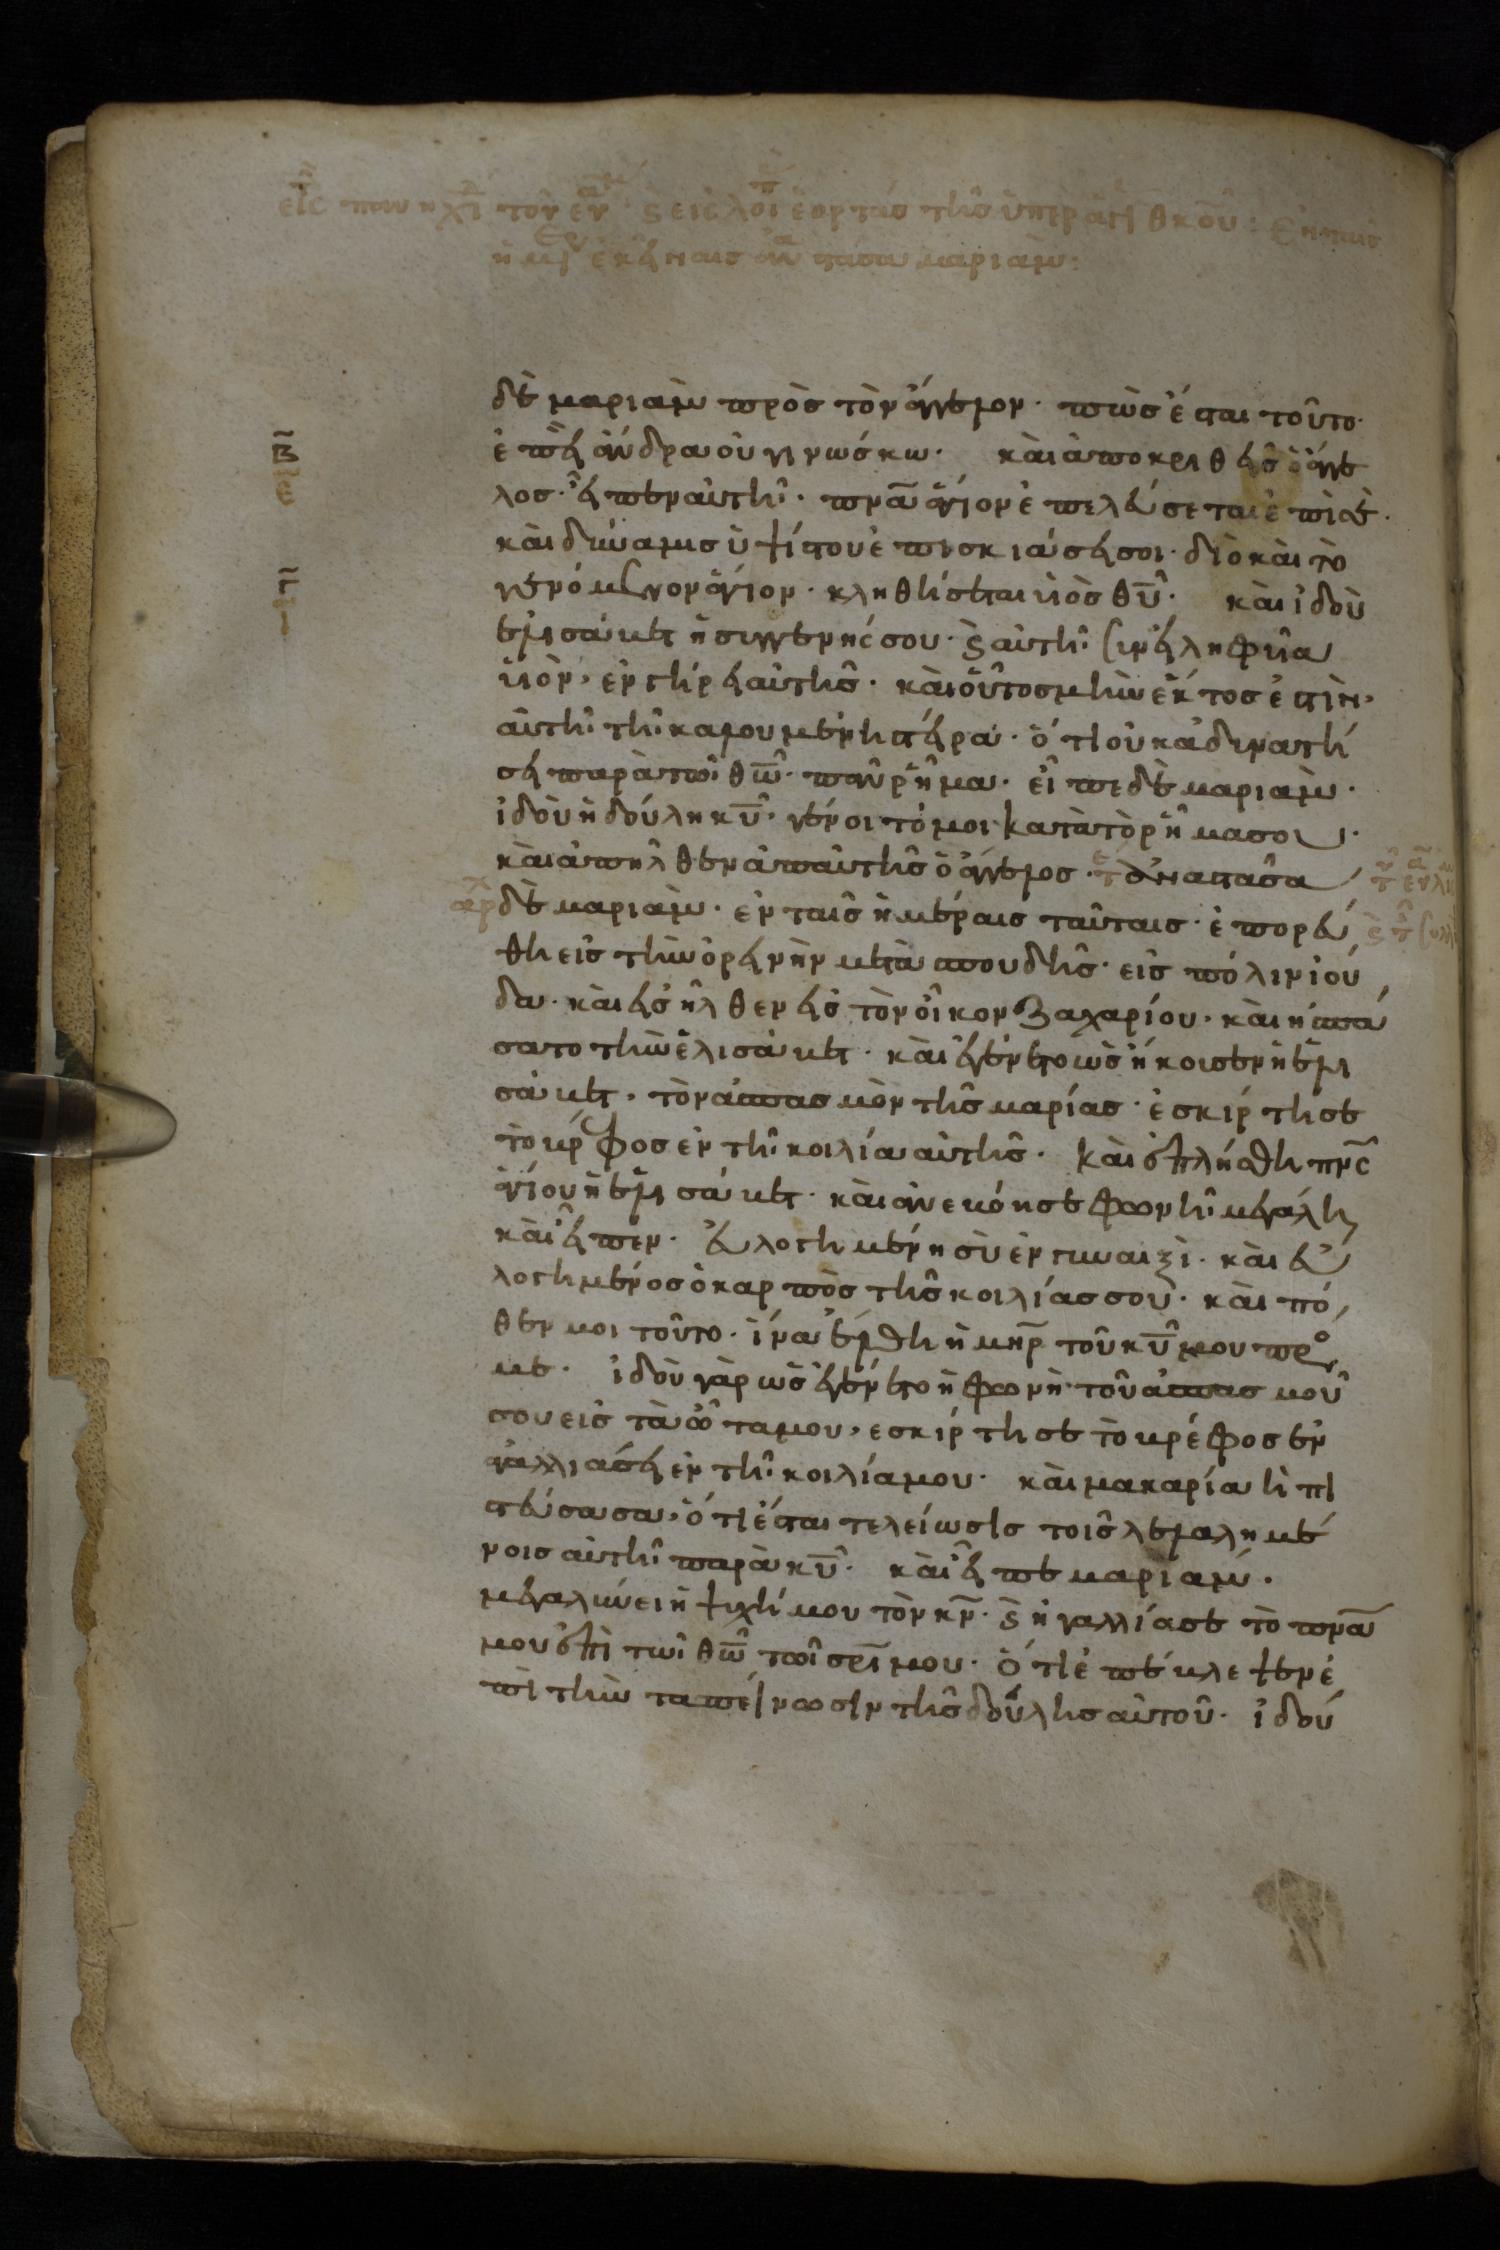 δὲ μαριὰμ πρὸς τὸν ἄγγελον· πῶς ἔσται τοῦτο·
ἐπεὶ ἄνδρα οὐ γινώσκω· καὶ ἀποκριθεὶς ὁ ἄγγε
λος· εἶπεν αὐτῆ· πνα ἅγιον ἐπελεύσεται ἐπὶ σὲ·
καὶ δύναμις ὑψίστου ἐπισκιάσει σοι· διὸ καὶ τὸ
γενόμενον ἅγιον· κληθήσεται υἱὸς θυ· καὶ ἰδοὺ
ἐλισάβετ ἡ συγγενής σου· καὶ αὐτὴ συνειληφυῖα
υἱὸν· ἐν γήρει αὐτῆς· καὶ οὗτος μὴν ἕκτος ἐστὶν·
αὐτῆ τῆ καλουμένη στείρα· ὅτι οὐκ ἀδυνατή
σει παρὰ τῶ θω· πᾶν ῥῆμα· εἶπε δὲ μαριὰμ·
ἰδοὺ ἡ δούλη κυ· γένοιτό μοι κατὰ τὸ ῥῆμα σου·
καὶ ἀπῆλθεν ἀπ αὐτῆς ὁ ἄγγελος· ἀναστᾶσα
δὲ μαριὰμ· ἐν ταῖς ἡμέραις ταύταις· ἐπορεύ
θη εἰς τὴν ὀρεινὴν μετὰ σπουδῆς· εἰς πόλιν ἰού
δα· καὶ εἰσῆλθεν εἰς τὸν οἶκον ζαχαρίου· καὶ ἠσπά
σατο τὴν ἐλισάβετ· καὶ ἐγένετο ὡς ἤκουσεν ἡ ἐλι
σάβετ· τὸν ἀσπασμὸν τῆς μαρίας· ἐσκίρτησε
τὸ βρέφος ἐν τῆ κοιλία αὐτῆς· καὶ ἐπλήσθη πνς
ἁγίου ἡ ἐλισάβετ· καὶ ἀνεβόησε φωνῆ μεγάλη
καὶ εἶπεν· εὐλογημένη σὺ ἐν γυναιξὶ· καὶ εὐ
λογημένος ὁ καρπὸς τῆς κοιλίας σου· καὶ πό
θεν μοι τοῦτο· ἵνα ἔλθη ἡ μηρ τοῦ κυ μου πρός
με· ἰδοὺ γὰρ ὡς ἐγένετο ἡ φωνὴ τοῦ ἀσπασμοῦ
σου εἰς τὰ ὦτα μου· ἐσκίρτησε τὸ βρέφος ἐν
ἀγαλλιάσει ἐν τῆ κοιλία μου· καὶ μακαρία ἡ πι
στεύσασα· ὅτι ἔσται τελείωσις τοῖς λελαλημέ
νοις αὐτῆ παρὰ κυ· καὶ εἶπε μαριάμ·
μεγαλύνει ἡ ψυχή μου τὸν κν· καὶ ἠγαλλίασε τὸ πνα
μου ἐπὶ τῶι θω τῶι σρι μου· ὅτι ἐπέβλεψεν ἐ
πὶ τὴν ταπείνωσιν τῆς δούλης αὐτοῦ· ἰδού